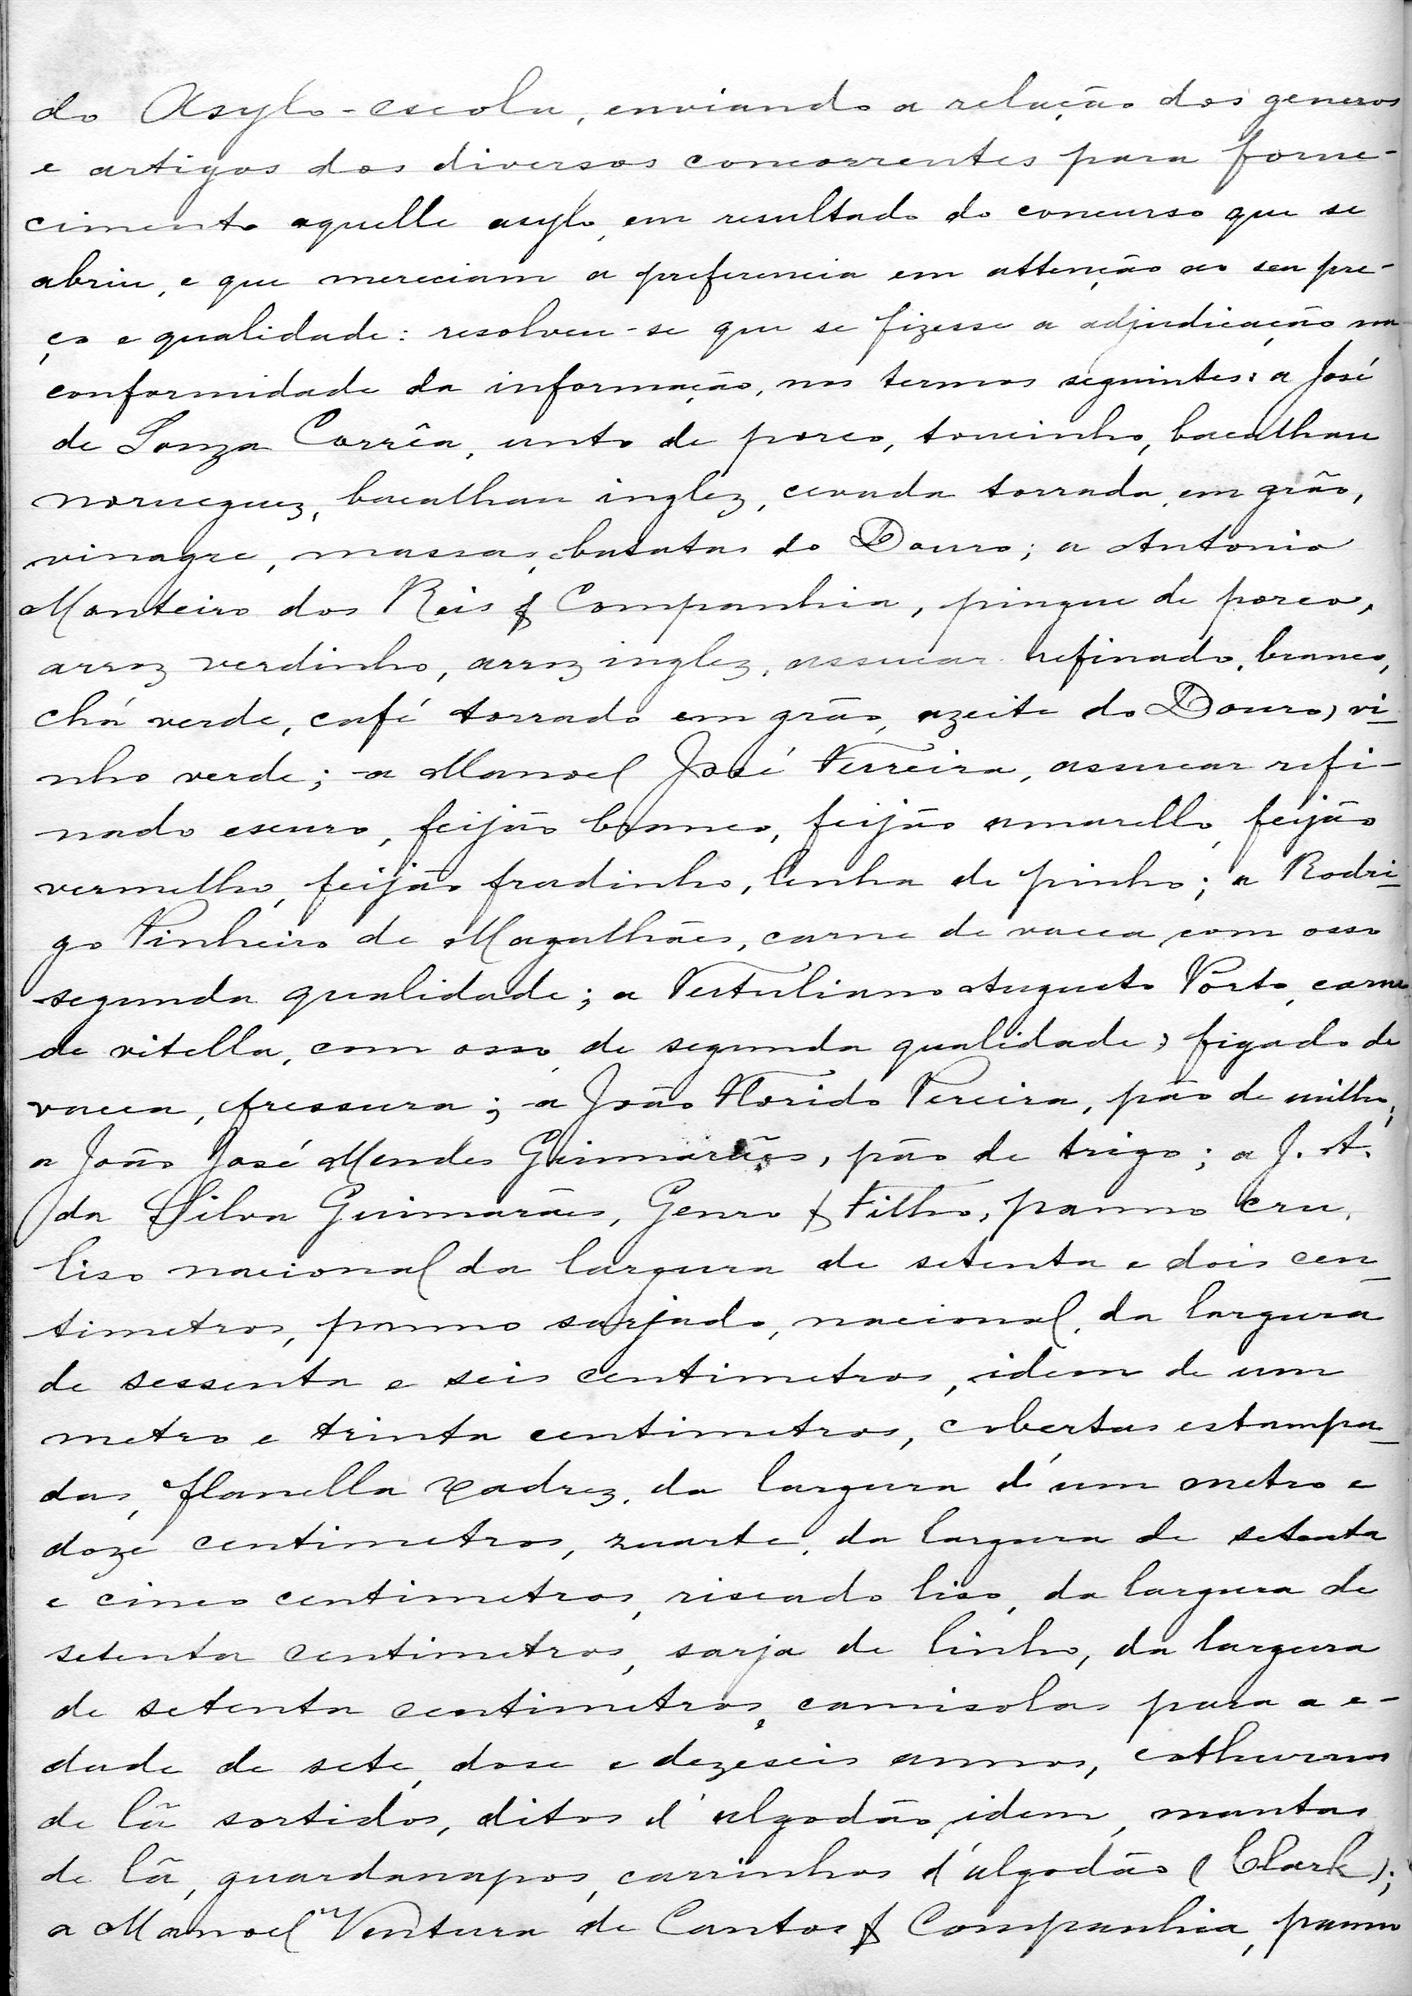 do Asylo-escola, enviando a relação dos generos
e artigos dos diversos concorrentes para forne-
cimento aquelle asylo, em resultado do concurso que se
abriu, e que mereciam a preferencia em attenção ao seu pre-
ço e qualidade: resolveu-se que se fizesse a adjudicação na
conformidade da informação, nos termos seguintes: a José
de Souza Corrêa, unto de porco, toucinho, bacalhau
norueguez, bacalhau inglez, cevada torrada em grão,
vinagre, massas, batatas do Douro; a Antonio
Monteiro dos Reis & Companhia, pingue de porco,
arroz verdinho, arroz inglez, assucar refinado, branco,
chá verde, café torrado em grão, azeite do Douro, vi-
nho verde; a Manoel José Ferreira, assucar refi-
nado escuro, feijão branco, feijão amarello, feijão
vermelho, feijão fradinho, lenha de pinho; a Rodri-
go Pinheiro de Magalhães, carne de vacca com osso
segunda qualidade; a Tertuliano Augusto Porto, carne
de vitella, com osso, de segunda qualidade, figado de
vacca, fressura; a João Florido Pereira, pão de milho;
a João José Mendes Guimarães, pão de trigo; a J. A.
da Silva Guimarães, Genro & Filho, panno cru,
liso nacional da largura de setenta e dois cen-
timetros, panno sarjado, nacional, da largura
de sessenta e seis centimetros, idem de um
metro e trinta centimetros, cobertas estampa-
das, flanella xadrez, da largura d'um metro e
doze centimetros, zuarte, da largura de setenta
e cinco centimetros, riscado liso, da largura de
setenta centimetros, sarja de linho, da largura
de setenta centimetros, camisolas para a e-
dade de sete, dose e dezeseis annos, cothurnos
de lã sortidos, ditos d'algodão, idem, mantas
de lã, guardanapos, carrinhos d'algodão (Clark);
a Manoel Ventura de Cantos & Companhia, panno